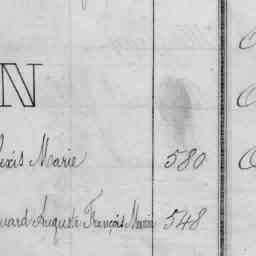 N
exis Marie 580
ouard Auguste François Marie 548